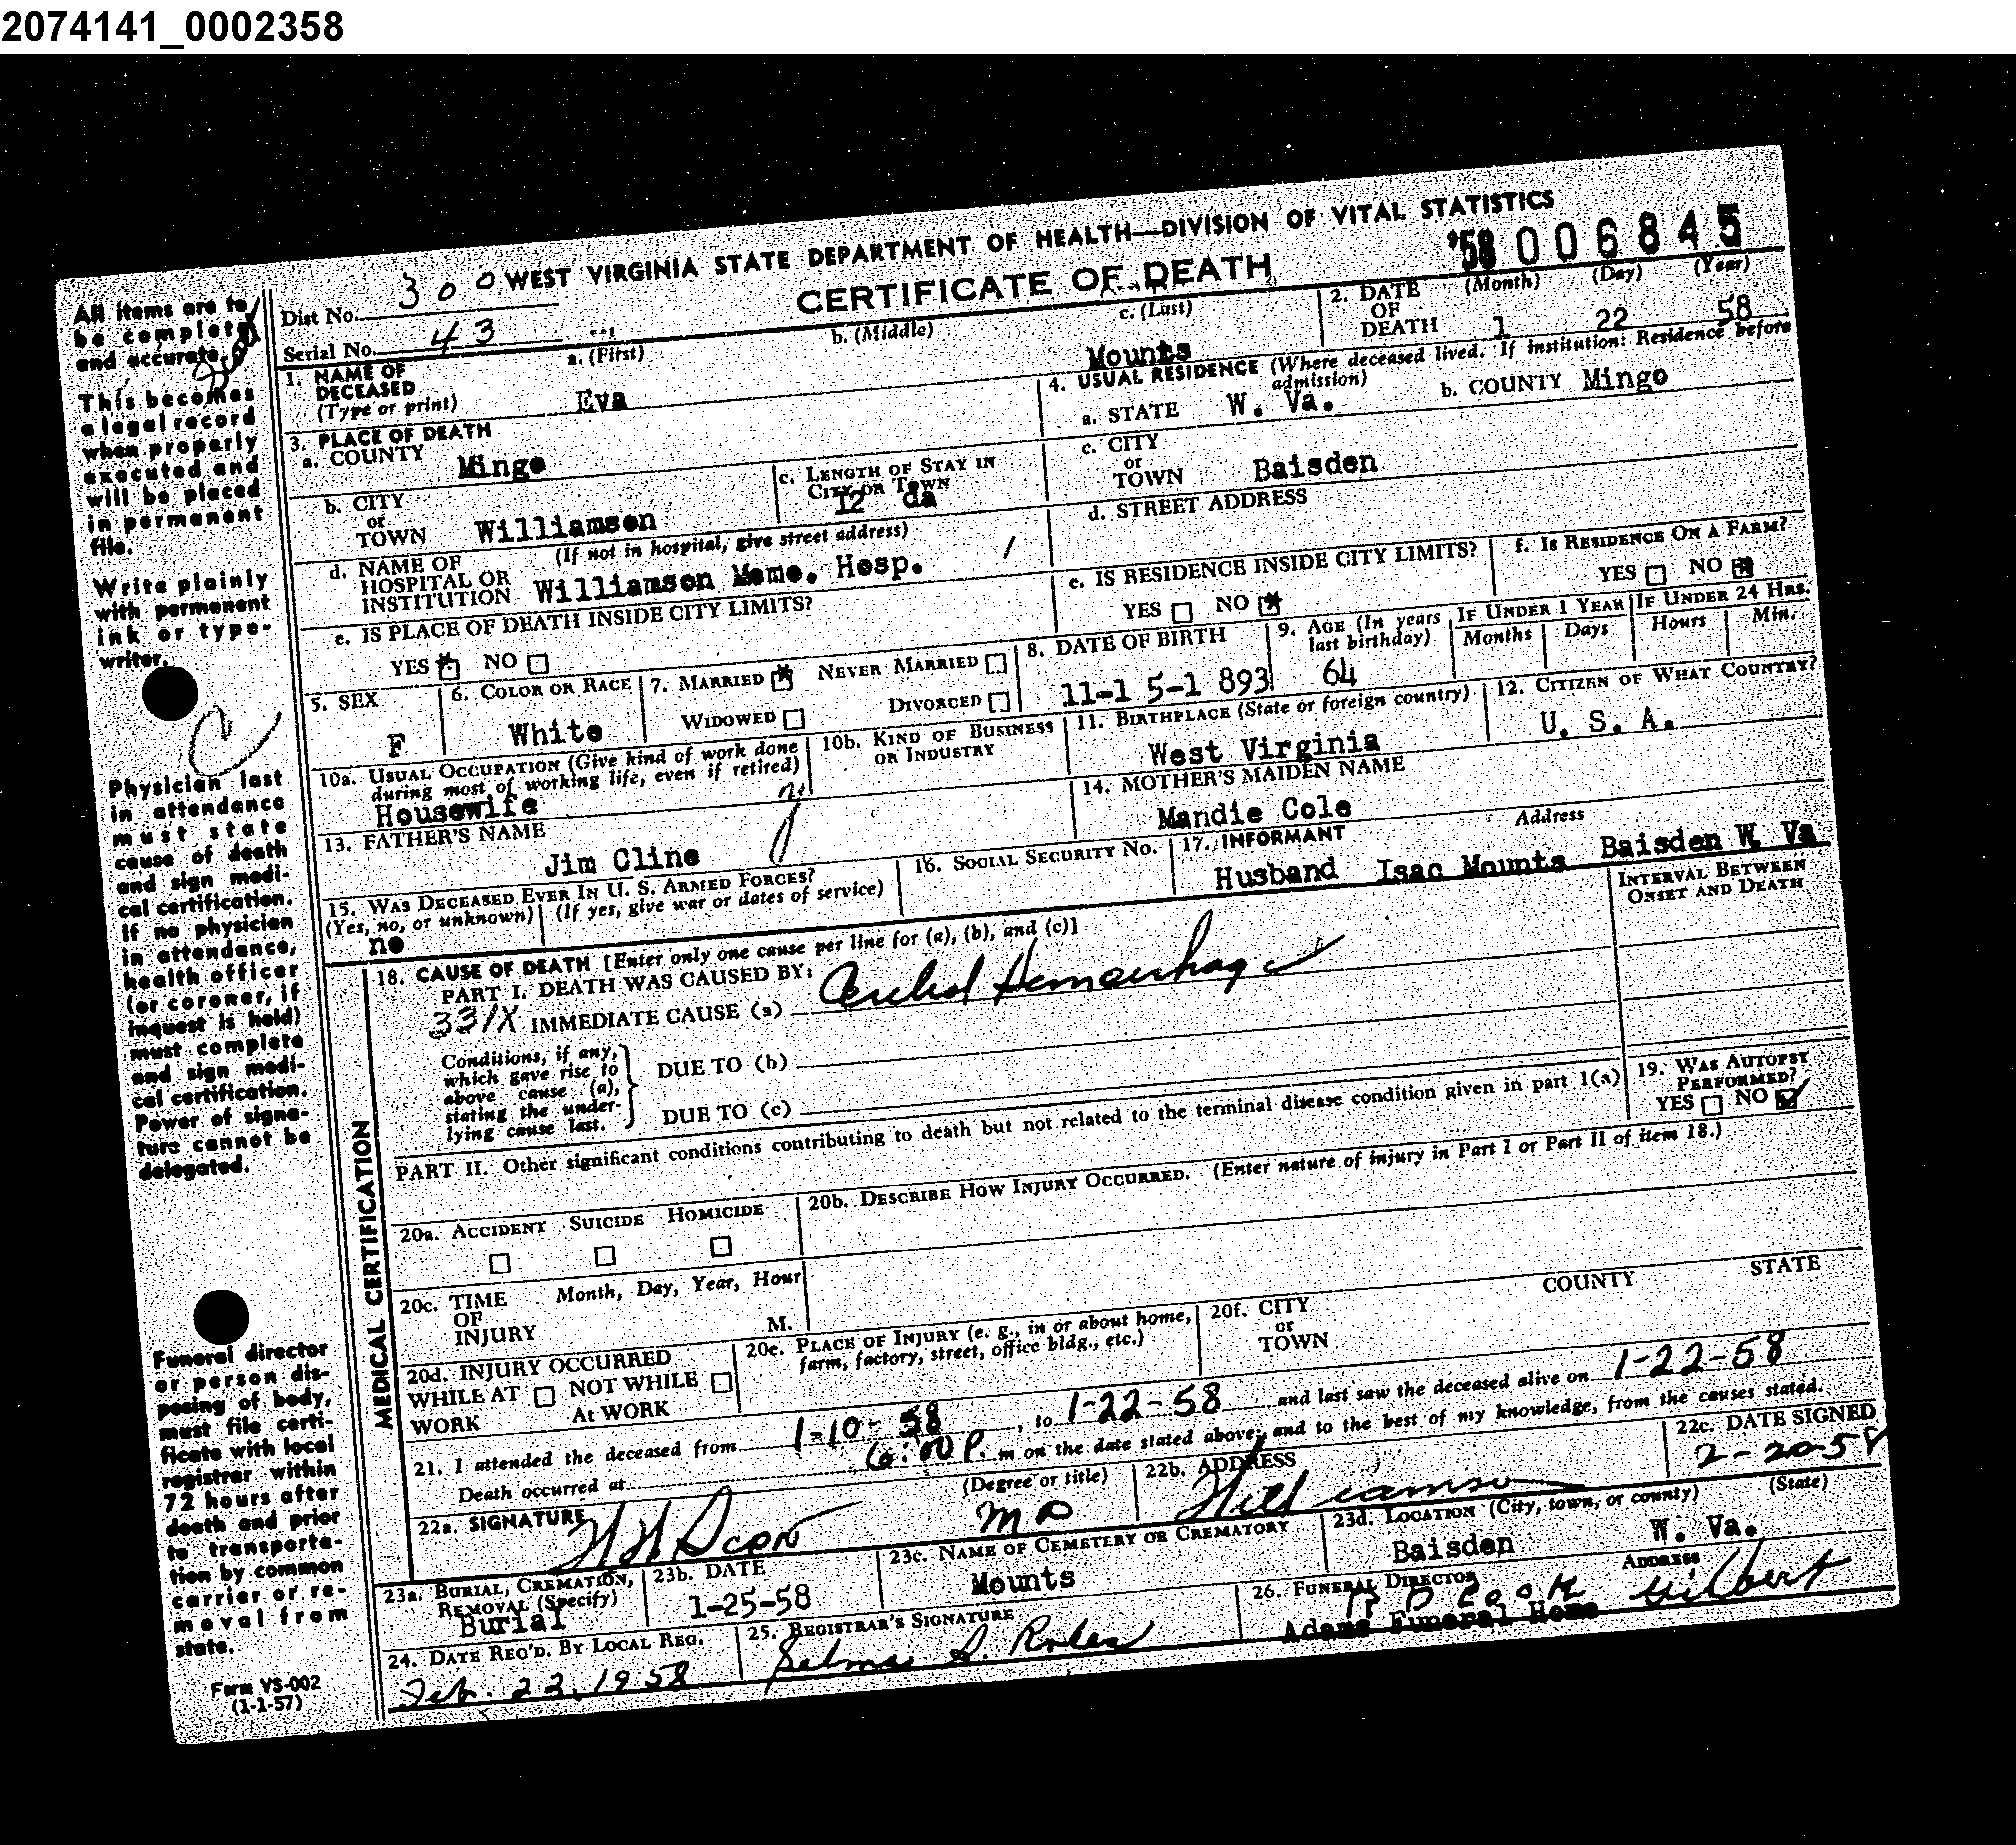 2074141_0002358
WEST VIRGINIA STATE DEPARTMENT OF HEALTH—DIVISION OF VITAL STATISTICS
CERTIFICATE OF DEATH
'58 006845
Dist No. 300
Serial No. 43
1. NAME OF DECEASED (Type or print)
a. (First) Eva
b. (Middle)
c. (Last) Mounts
2. DATE OF DEATH (Month) (Day) (Year)
1 22 58
3. PLACE OF DEATH
a. COUNTY Mingo
b. CITY or TOWN Williamson
c. LENGTH OF STAY IN CITY OR TOWN 12 da
d. NAME OF HOSPITAL OR INSTITUTION (If not in hospital, give street address)
Williamson Meme. Hosp.
e. IS PLACE OF DEATH INSIDE CITY LIMITS?
YES NO
4. USUAL RESIDENCE (Where deceased lived. If institution: Residence before admission)
a. STATE W. Va.
b. COUNTY Mingo
c. CITY or TOWN Baisden
d. STREET ADDRESS
e. IS RESIDENCE INSIDE CITY LIMITS?
YES NO
f. IS RESIDENCE ON A FARM?
YES NO
5. SEX F
6. COLOR OR RACE White
7. MARRIED NEVER MARRIED
WIDOWED DIVORCED
8. DATE OF BIRTH
11-1 5-1 893
9. AGE (In years last birthday) 64
IF UNDER 1 YEAR Months Days
IF UNDER 24 HRS. Hours Min.
10a. USUAL OCCUPATION (Give kind of work done during most of working life, even if retired)
Housewife
10b. KIND OF BUSINESS OR INDUSTRY
11. BIRTHPLACE (State or foreign country)
West Virginia
12. CITIZEN OF WHAT COUNTRY?
U. S. A.
13. FATHER'S NAME
Jim Cline
14. MOTHER'S MAIDEN NAME
Mandie Cole
15. WAS DECEASED EVER IN U. S. ARMED FORCES?
(Yes, no, or unknown) (If yes, give war or dates of service)
no
16. SOCIAL SECURITY NO.
17. INFORMANT Address
Husband Isac Mounts Baisden W. Va
MEDICAL CERTIFICATION
18. CAUSE OF DEATH [Enter only one cause per line for (a), (b), and (c)]
INTERVAL BETWEEN ONSET AND DEATH
PART I. DEATH WAS CAUSED BY:
331X IMMEDIATE CAUSE (a) Cerebral Hemorrhage
Conditions, if any, which gave rise to above cause (a), stating the underlying cause last.
DUE TO (b)
DUE TO (c)
PART II. Other significant conditions contributing to death but not related to the terminal disease condition given in part I(a)
19. WAS AUTOPSY PERFORMED?
YES NO
20a. ACCIDENT SUICIDE HOMICIDE
20b. DESCRIBE HOW INJURY OCCURRED. (Enter nature of injury in Part I or Part II of item 18.)
20c. TIME OF INJURY Month, Day, Year, Hour M.
20d. INJURY OCCURRED
WHILE AT WORK NOT WHILE At WORK
20e. PLACE OF INJURY (e. g., in or about home, farm, factory, street, office bldg., etc.)
20f. CITY or TOWN COUNTY STATE
21. I attended the deceased from 1-10-58, to 1-22-58 and last saw the deceased alive on 1-22-58
Death occurred at 6:00 P. m on the date stated above; and to the best of my knowledge, from the causes stated.
22a. SIGNATURE (Degree or title)
MD
22b. ADDRESS
Williamson
22c. DATE SIGNED
2-20-58
23a. BURIAL, CREMATION, REMOVAL (Specify)
Burial
23b. DATE
1-25-58
23c. NAME OF CEMETERY OR CREMATORY
Mounts
23d. LOCATION (City, town, or county) (State)
Baisden W. Va.
24. DATE REC'D. BY LOCAL REG.
Feb. 22, 1958
25. REGISTRAR'S SIGNATURE
26. FUNERAL DIRECTOR ADDRESS
Cook Gilbert
Adams Funeral Home
All items are to be complete and accurate.
This becomes a legal record when properly executed and will be placed in permanent file.
Write plainly with permanent ink or typewriter.
Physician last in attendance must state cause of death and sign medical certification. If no physician in attendance, health officer (or coroner, if inquest is held) must complete and sign medical certification. Power of signature cannot be delegated.
Funeral director or person disposing of body, must file certificate with local registrar within 72 hours after death and prior to transportation by common carrier or removal from state.
Form VS-002
(1-1-57)